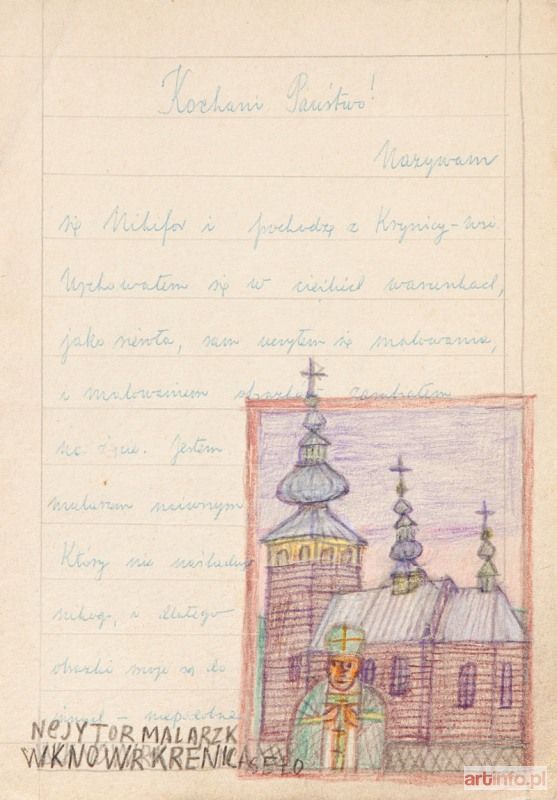 Kochani Państwo!
Nazywam
się Nikifor i pochodzę z Krynicy-wsi.
Wychowałem się w ciężkich warunkach,
jako sierota, sam uczyłem się malowania,
i malowaniem obrazków zarabiałem
na życie. Jestem
malarzem naiwnym
Który nie naśladuje
nikogo, i dlatego
obrazki moje są do
innych - niepodobne
NeJYTOR MALARZK
WKNOWR KRENICA SEŁO
artinfo.pl